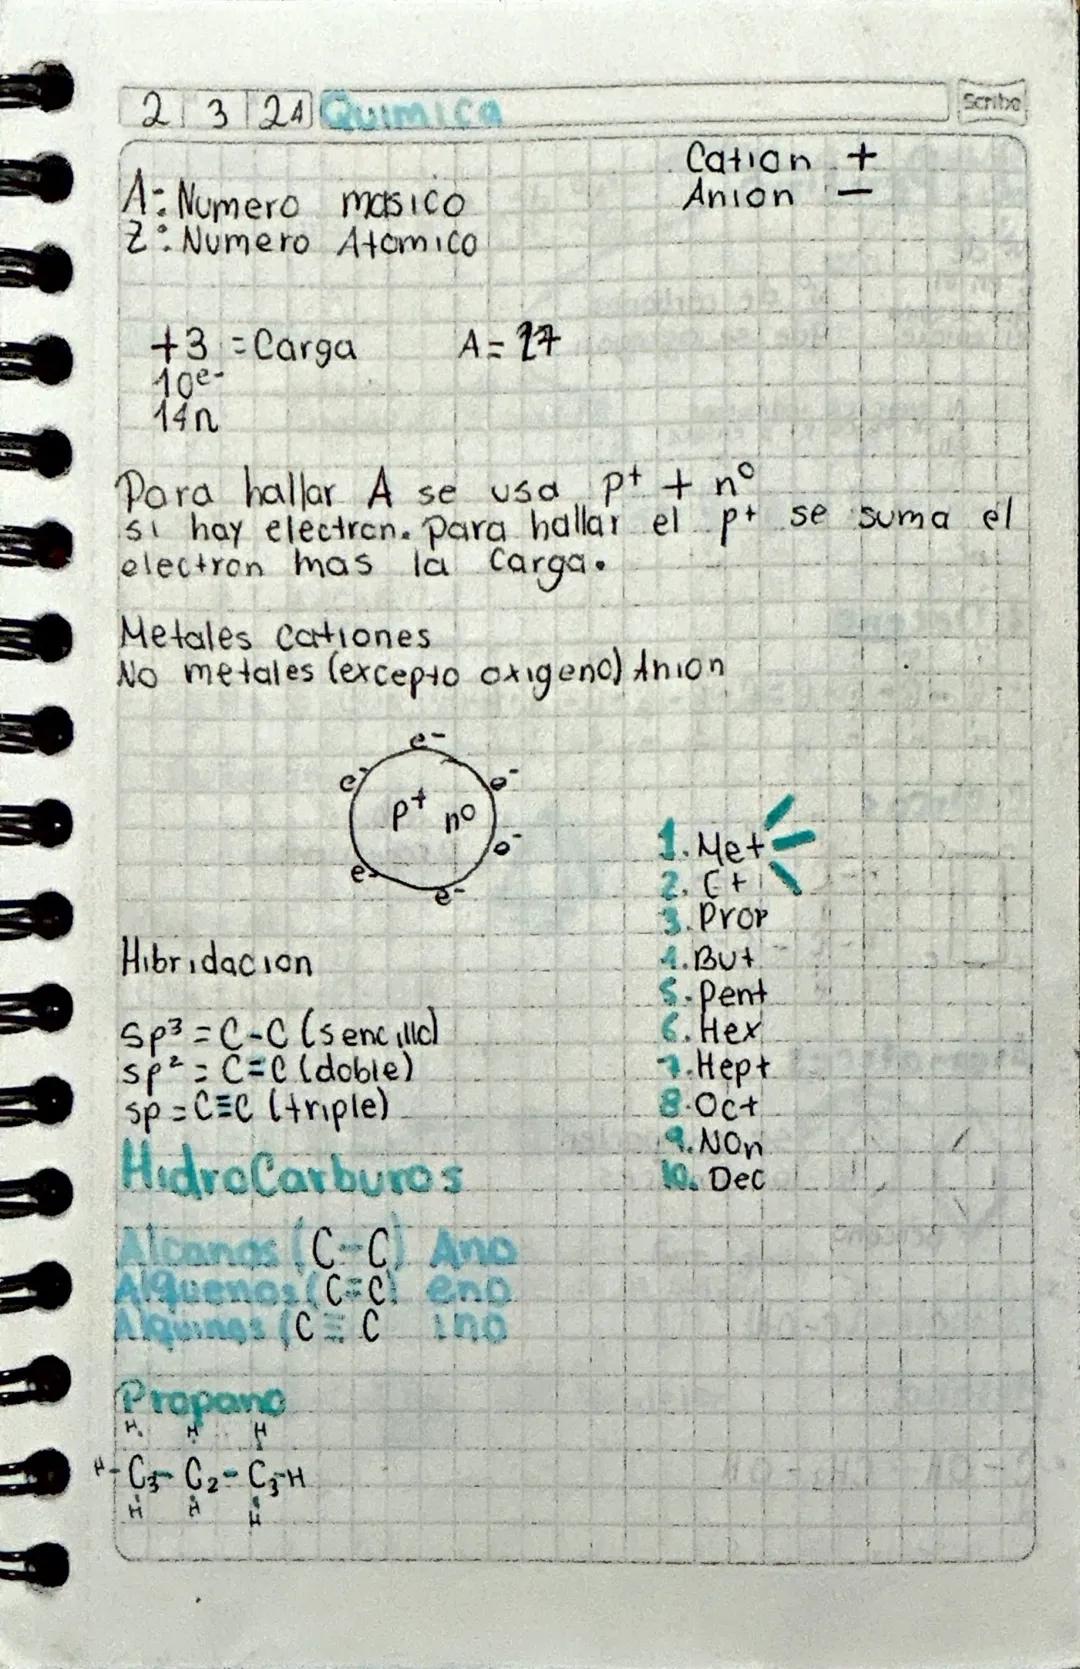 2 3 24 Quimica
Scribe
Cation +
Anion −
A: Numero masico
Z: Numero Atomico
+3 = Carga A = 27
10e-
14n
Para hallar A se usa p+ + n°
si hay electron. para hallar el p+ se suma el
electron mas la carga.
Metales cationes
No metales (excepto oxigeno) Anion
e-
e- e-
p+ n°
e-
e- e-
1. Met
2. Et
3. Prop
4. But
5. Pent
6. Hex
7. Hept
8. Oct
9. Non
10. Dec
Hibridacion
Sp³ = C-C (sencilla)
sp² = C=C (doble)
sp = C≡C (triple)
HidroCarburos
Alcanos (C-C) Ano
Alquenos (C=C) eno
Alquinos (C≡C ino
Propano
H H H
H-C3-C2-C3-H
H H H